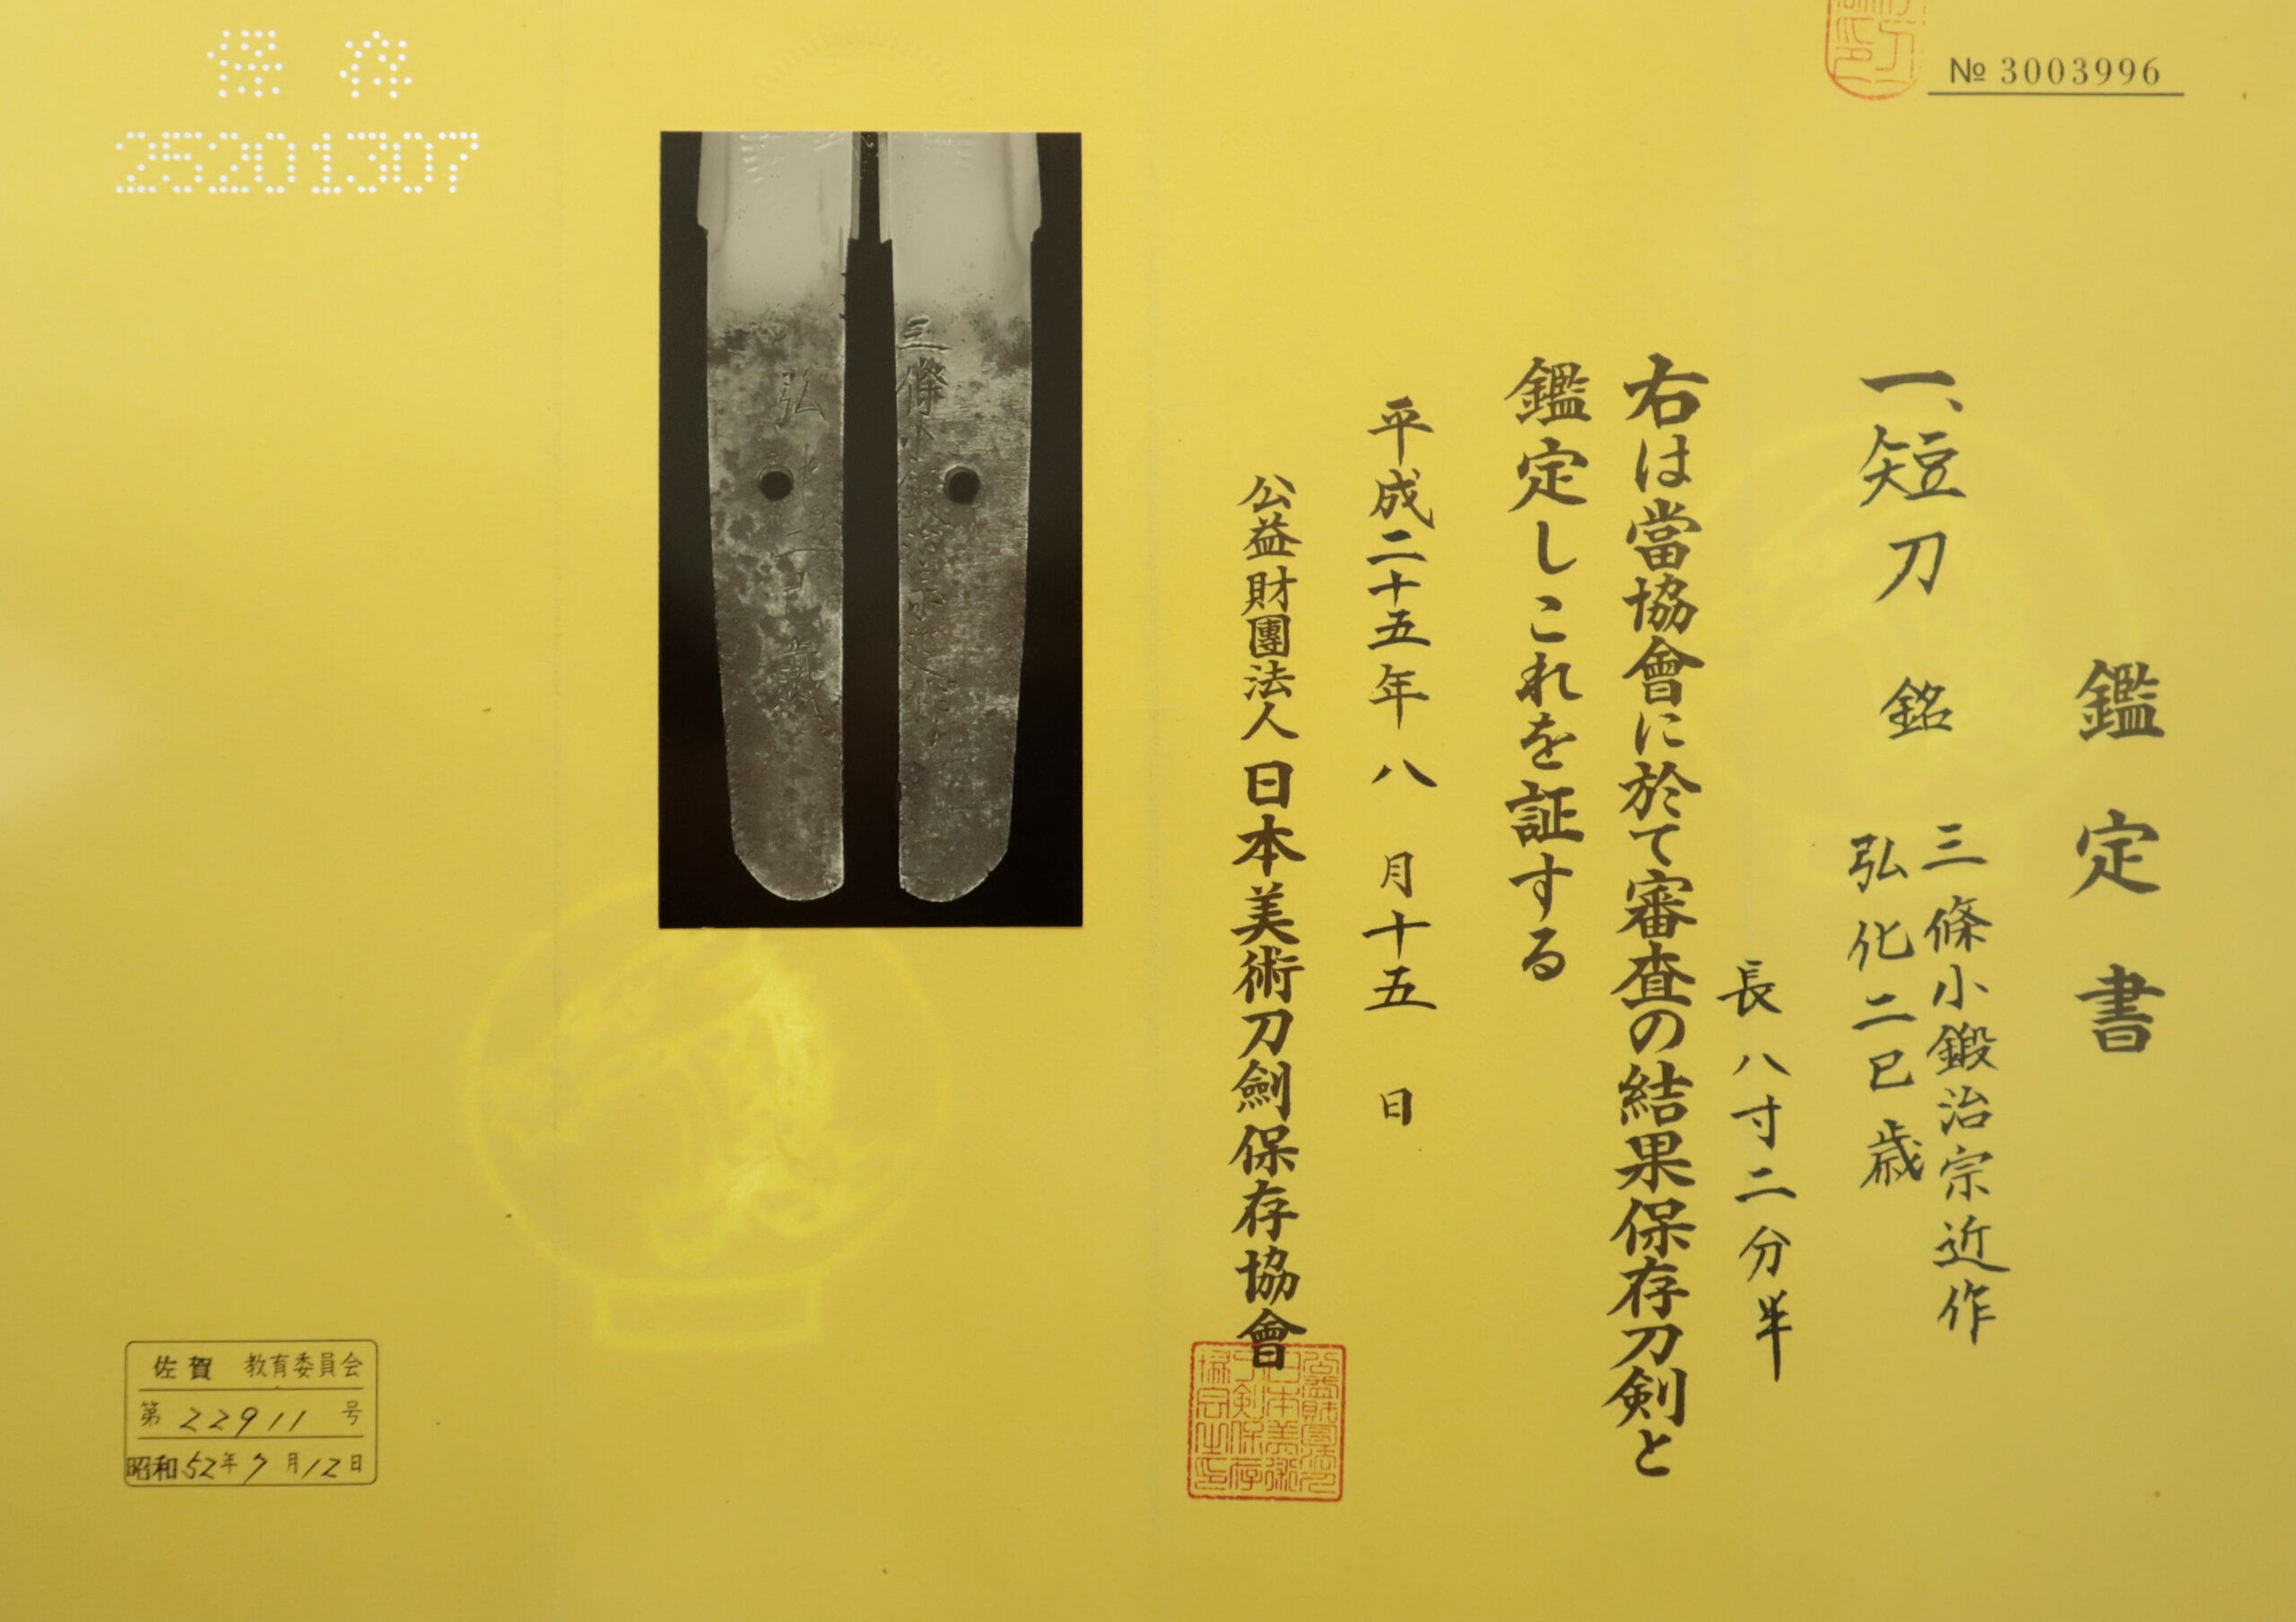 № 3003996
鑑定書
一、短刀 銘 三條小鍛治宗近作
弘化二巳歳
長八寸二分半
右は當協會に於て審査の結果保存刀剣と
鑑定しこれを証する
平成二十五年八月十五日
公益財團法人日本美術刀劍保存協會
保存
25201307
三條小鍛治宗近作
弘化二巳歳
佐賀 教育委員会
第 22911 号
昭和52年7月12日